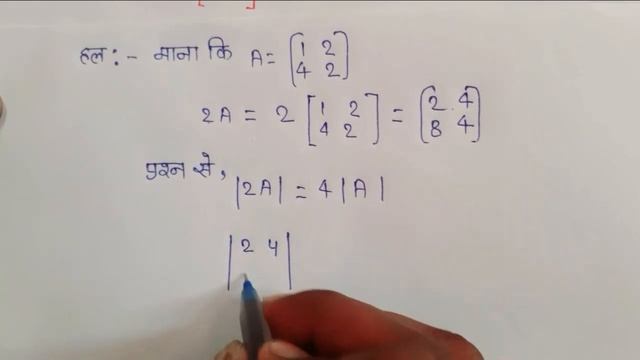 हल :- माना कि A = [1 2 4 2]
2A = 2 [1 2 4 2] = [2 4 8 4]
प्रश्न से, |2A| = 4 |A|
|2 4|